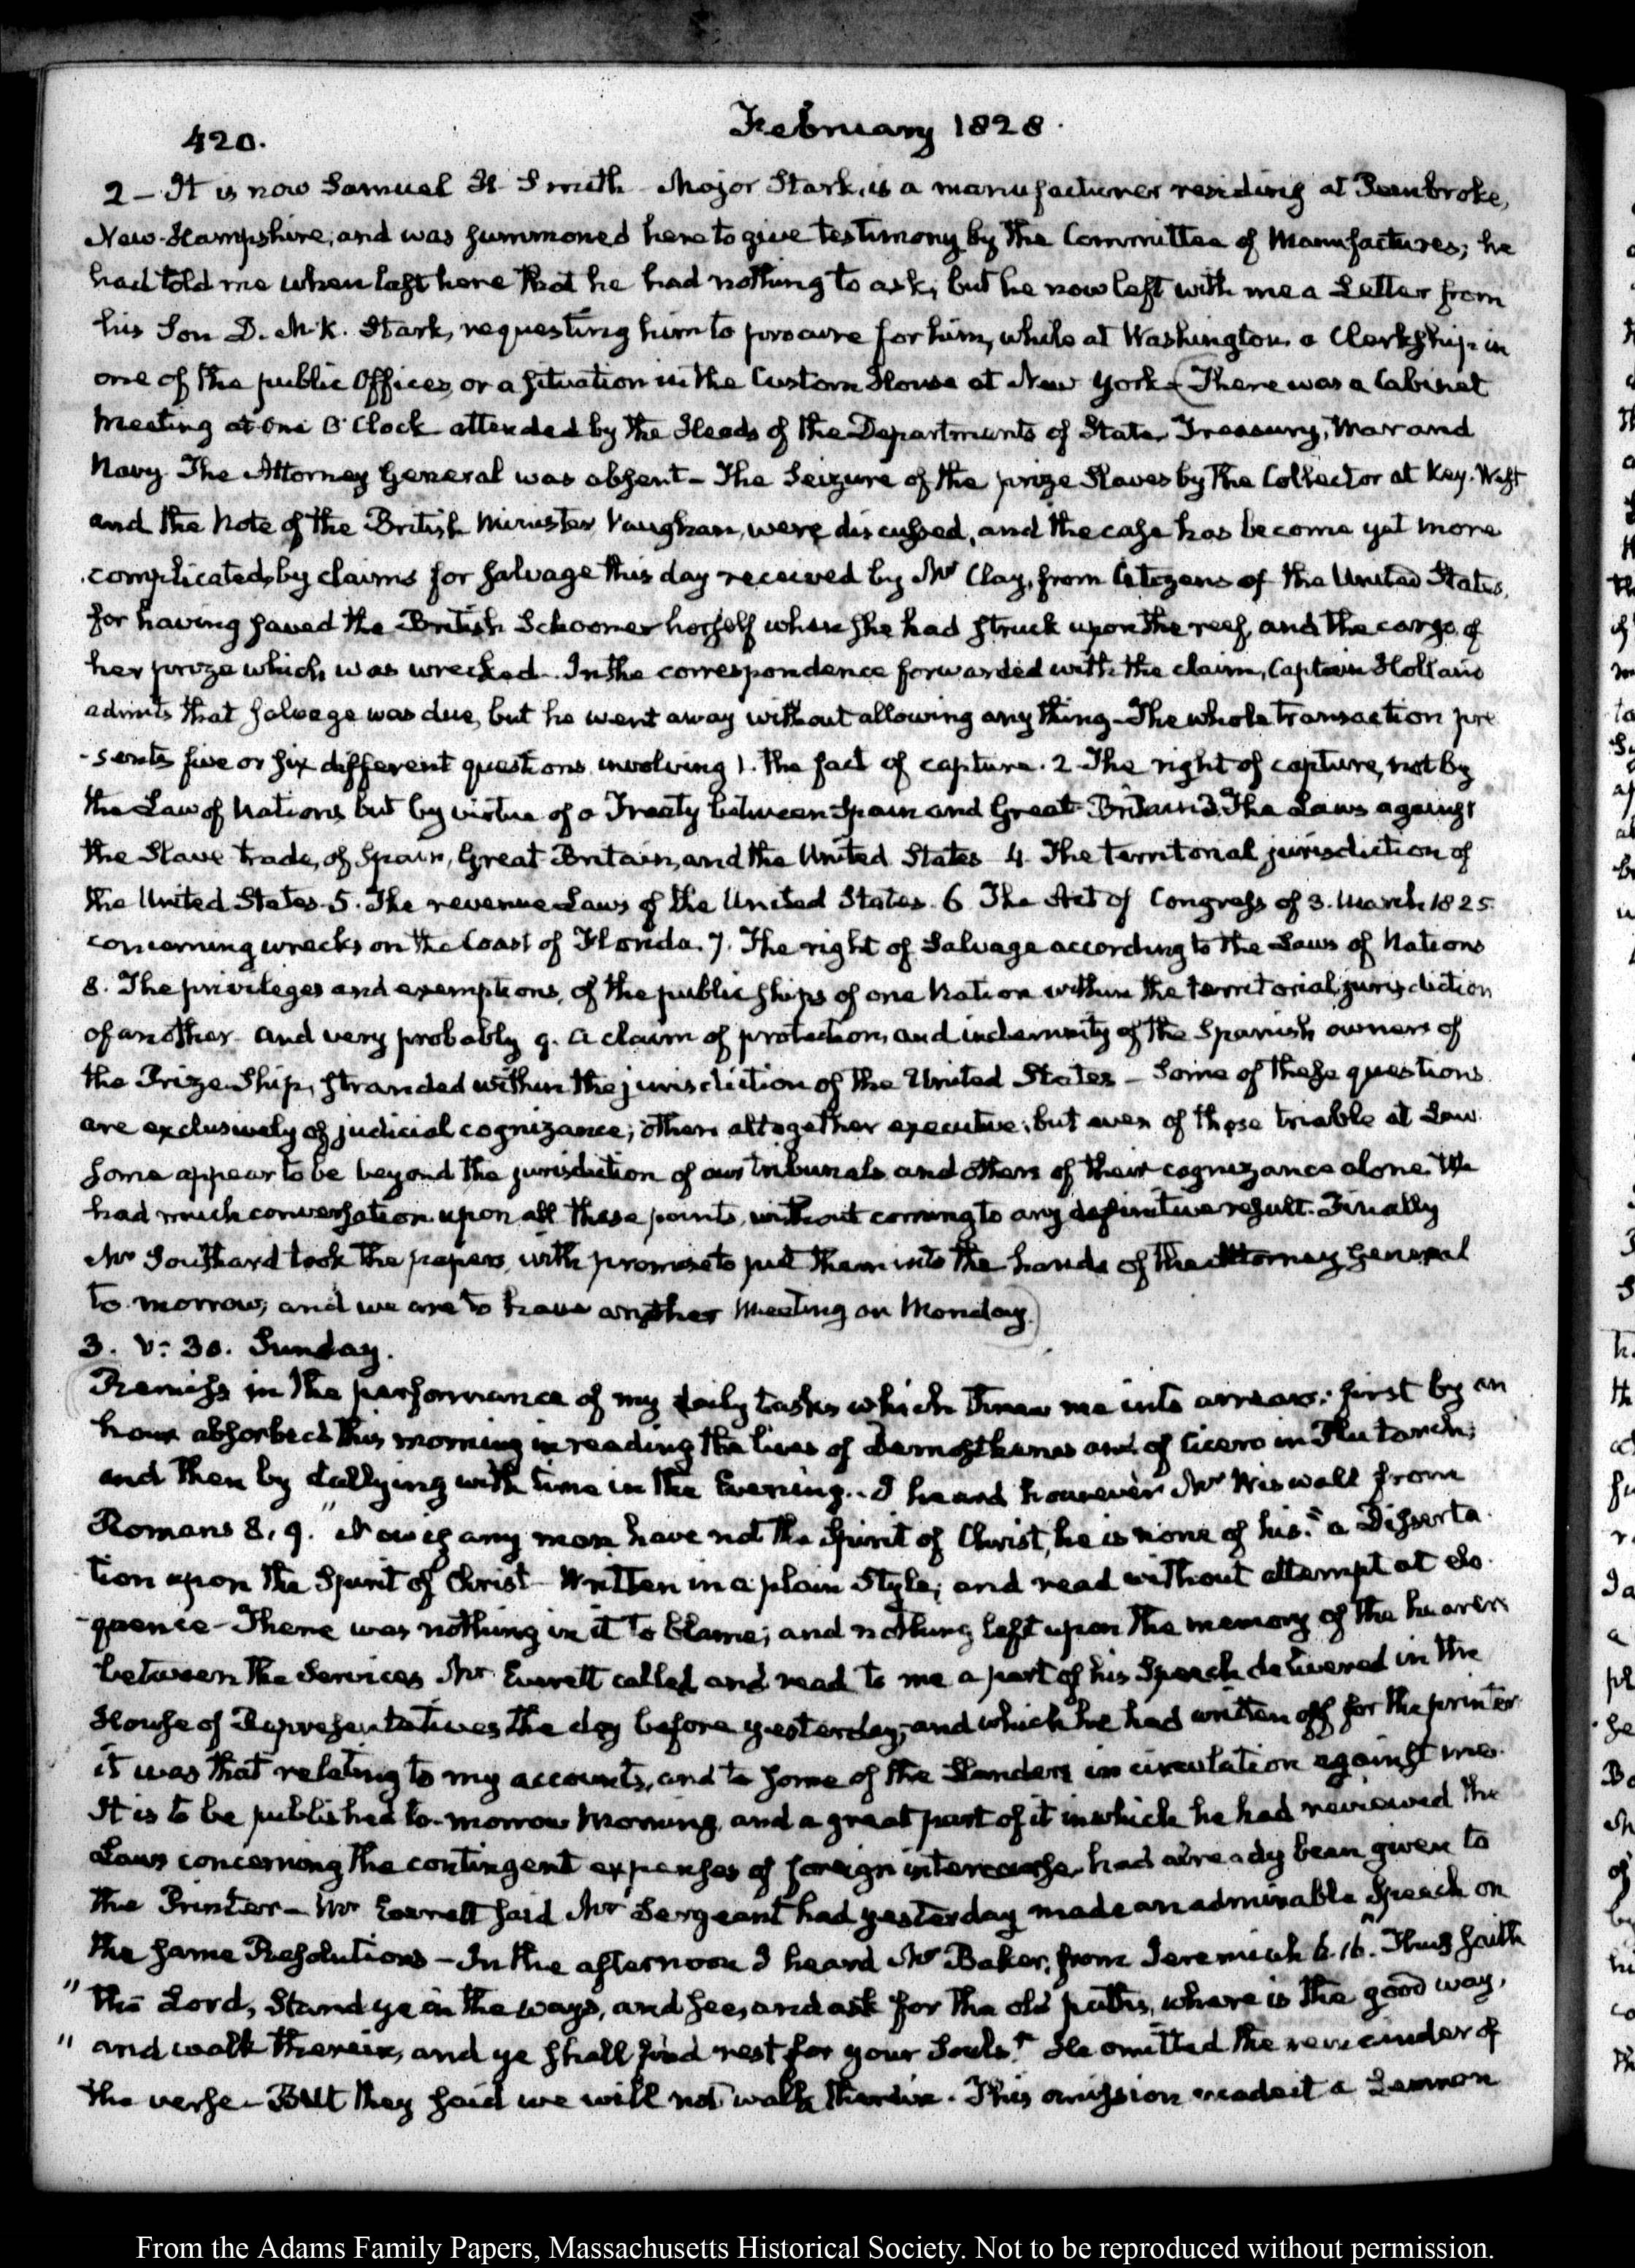 420.
February 1828.
2 – It is now Samuel H Smith Major Stark, is a manufacturer residing at Pembroke,
New-Hampshire, and was summoned here to give testimony by the Committee of Manufactures; he
had told me when last here that he had nothing to ask; but he now left with me a Letter from
his Son D. McK. Stark, requesting him to procure for him, while at Washington a Clerkship in
one of the public Offices, or a situation in the Custom House at New York – (There was a Cabinet
Meeting at one O'Clock attended by the Heads of the Departments of State, Treasury, War and
Navy. The Attorney General was absent – The Seizure of the prize Slaves by the Collector at Key-West
and the Note of the British Minister Vaughan, were discussed, and the case has become yet more
complicated, by claims for salvage this day received by Mr Clay, from Citizens of the United States,
for having saved the British Schooner herself when she had struck upon the reef, and the cargo of
her prize which was wrecked. In the correspondence forwarded with the claim, Captain Holland
admits that salvage was due, but he went away without allowing any thing – The whole transaction pre
-sents five or six different questions involving 1. The fact of capture. 2 The right of capture, not by
the Law of Nations but by virtue of a Treaty between Spain and Great-Britain 3. The Laws against
the Slave trade, of Spain, Great Britain, and the United States 4. The territorial jurisdiction of
the United States. 5. The revenue Laws of the United States. 6 The Act of Congress of 3. March 1825
concerning wrecks on the Coast of Florida. 7. The right of Salvage according to the Laws of Nations
8. The privileges and exemptions, of the public ships of one Nation within the territorial jurisdiction
of another and very probably 9. a claim of protection, and indemnity of the Spanish owners of
the Prize Ship, stranded within the jurisdiction of the United States – Some of these questions
are exclusively of judicial cognizance; others altogether executive; but even of those triable at Law
some appear to be beyond the jurisdiction of our tribunals and others of their cognizance alone. We
had much conversation upon all these points, without coming to any definitive result. Finally
Mr Southard took the papers, with promise to put them into the hands of the Attorney General
to-morrow, and we are to have another Meeting on Monday.)
3. V: 30. Sunday.
Remiss in the performance of my daily tasks which threw me into arrears: first by an
hour absorbed this morning in reading the lives of Demosthenes and of Cicero in Plutarch;
and then by dallying with time in the Evening.. I heard however Mr Wiswall from
Romans 8. 9. "Now if any man have not the Spirit of Christ, he is none of his." a Disserta
tion upon the Spirit of Christ – Written in a plain Style; and read without attempt at elo
-quence – There was nothing in it to blame; and nothing left upon the memory of the hearers
between the Services Mr Everett called and read to me a part of his Speech delivered in the
House of Representatives the day before yesterday; and which he had written off for the printer
it was that relating to my accounts, and to some of the Slanders in circulation against me.
It is to be published to-morrow Morning, and a great part of it in which he had reviewed the
Laws concerning the contingent expenses of foreign intercourse had already been given to
the Printer – Mr Everett said Mr Sergeant had yesterday made an admirable Speech on
the same Resolutions – In the afternoon I heard Mr Baker, from Jeremiah 6. 16. "Thus saith
" the Lord, Stand ye in the ways, and see, and ask for the old paths, where is the good way,
" and walk therein, and ye shall find rest for your Souls." He omitted the remainder of
the verse – But they said we will not walk therein. This omission made it a Sermon
From the Adams Family Papers, Massachusetts Historical Society. Not to be reproduced without permission.